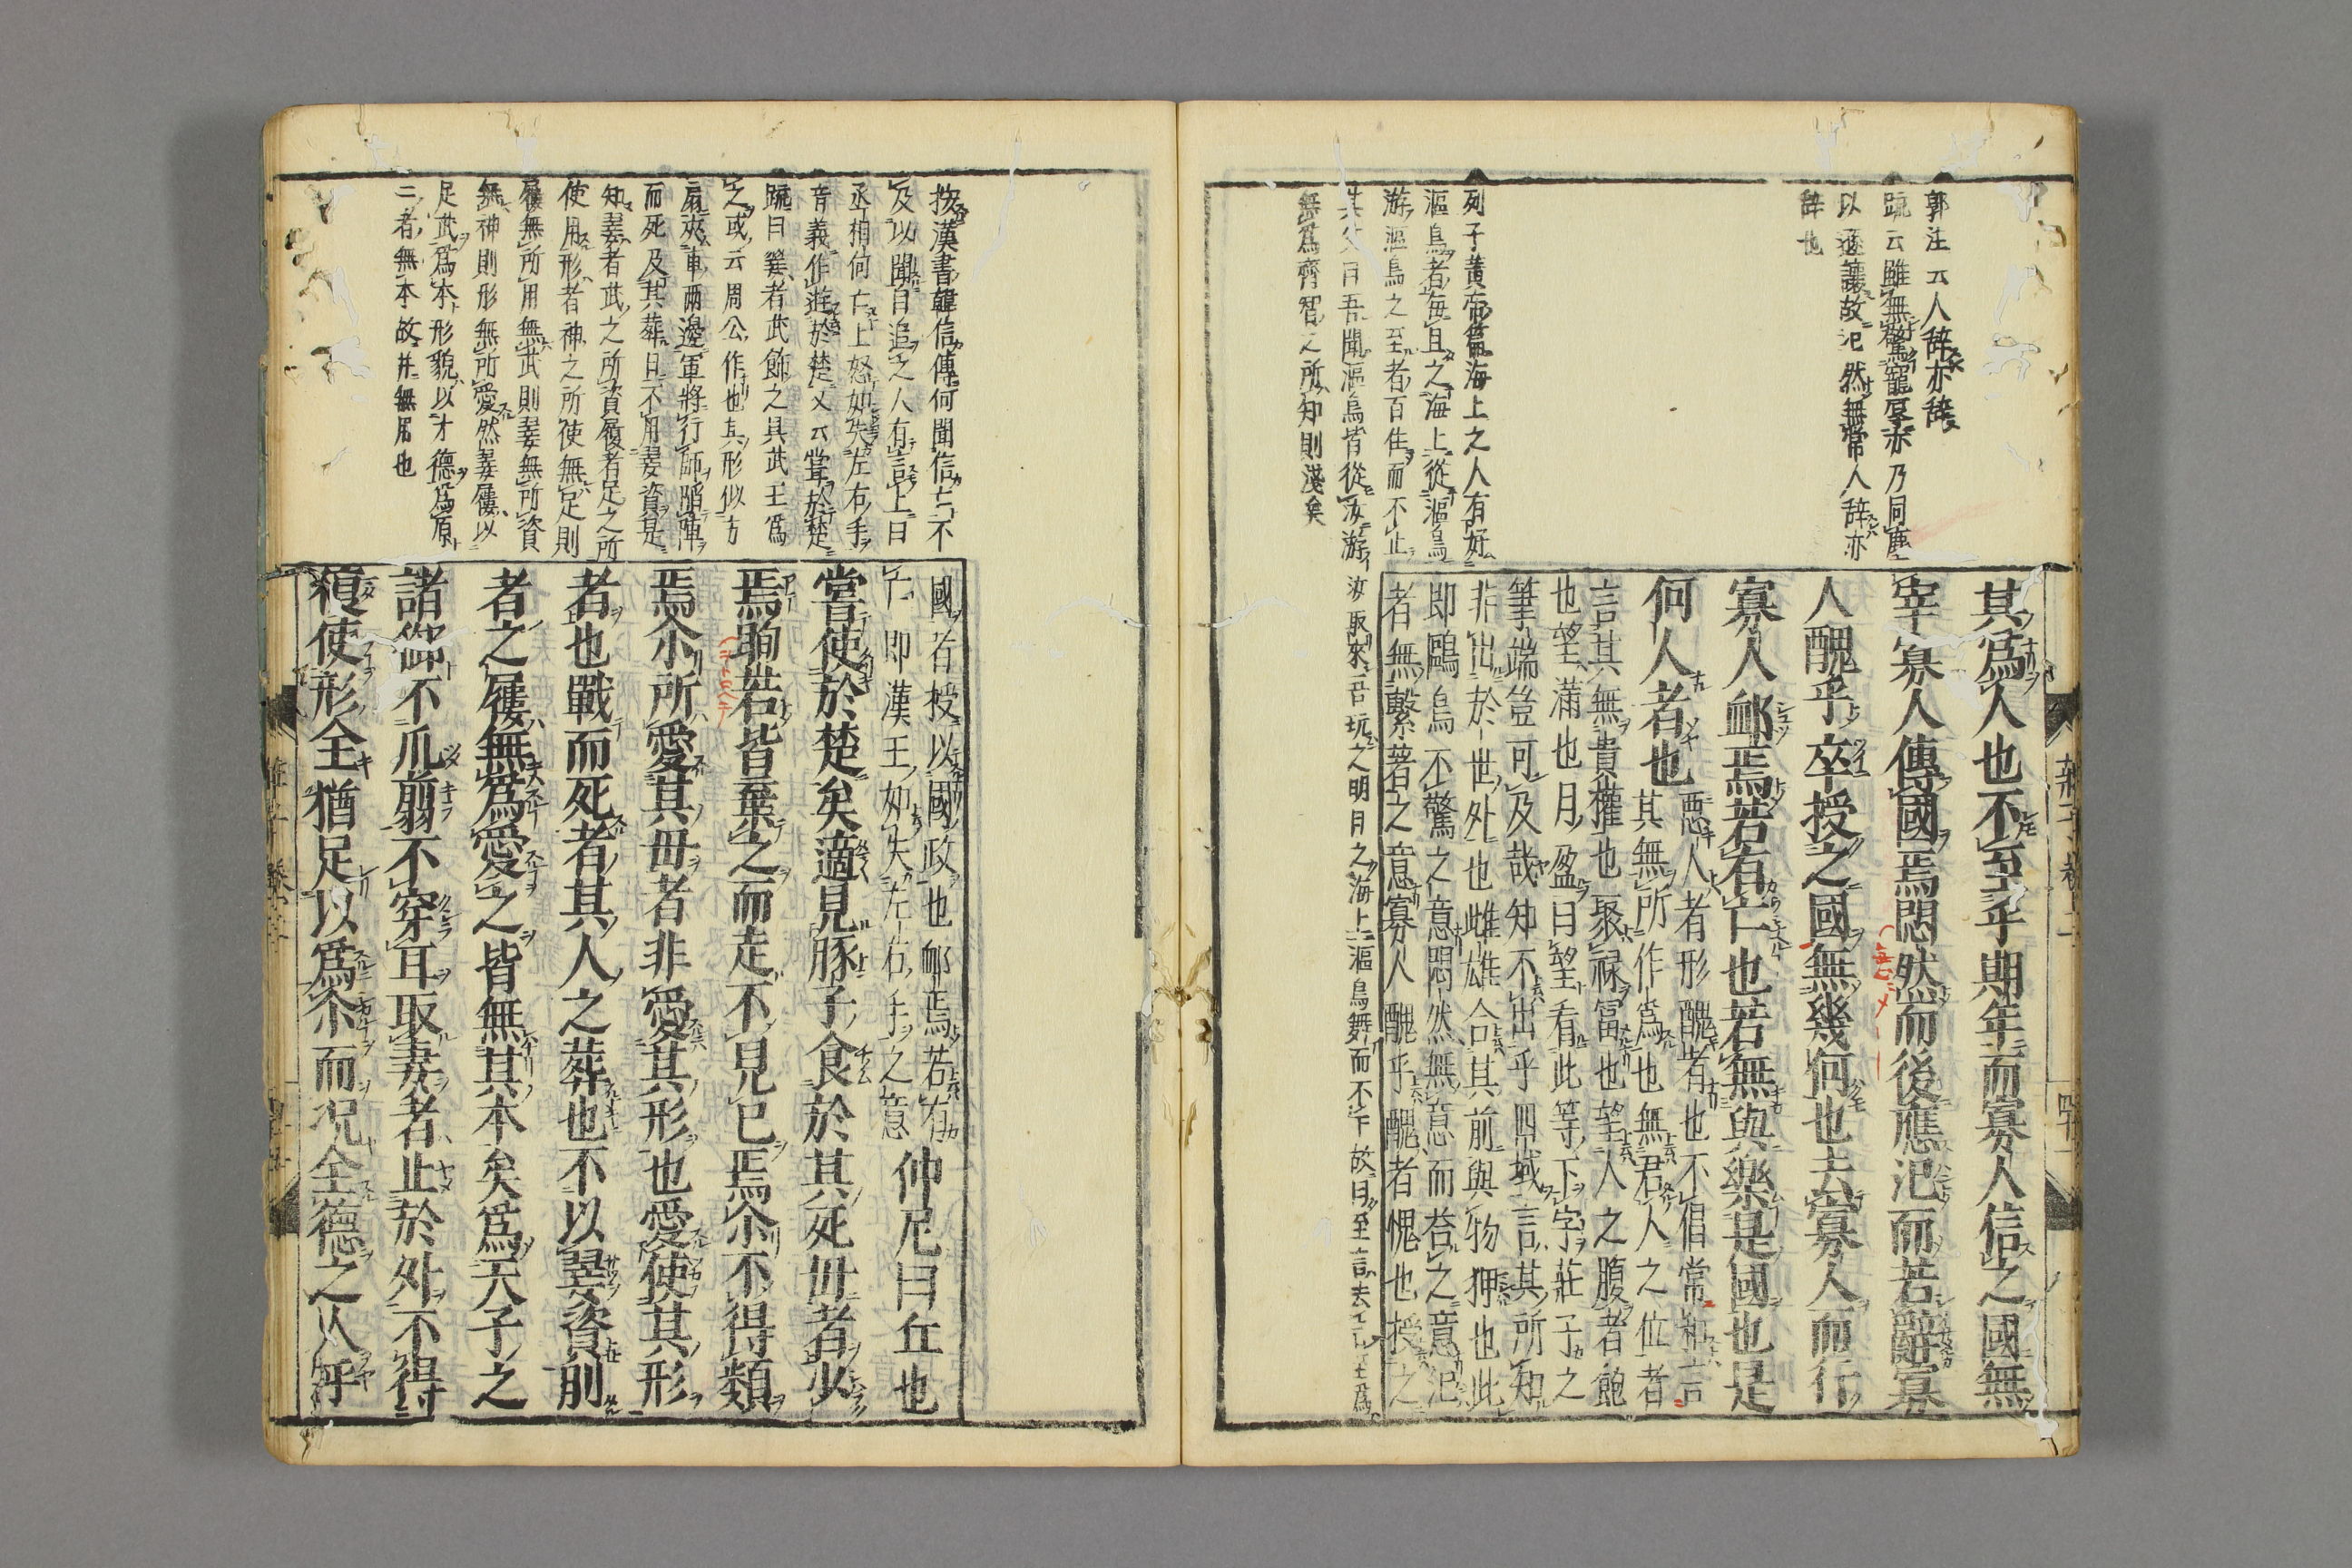 郭注云人辞亦辞
疏云雖無驚寵辱亦乃同塵
以遜讓故氾然無常人辞亦
辞也
列子黄帝篇海上之人有好
漚鳥者毎旦之海上從漚鳥
游漚鳥之至者百住而不止
其父曰吾聞漚鳥皆從汝游
汝取來吾玩之明月之海上漚鳥舞而不下故曰至言去言至爲
無爲齊智之所知則淺矣
其爲人也不至乎期年而寡人信之國無
宰寡人傳國焉悶然而後應氾而若辭寡
人醜乎卒授之國無幾何也去寡人而行
寡人卹焉若有亡也若無與樂是國也是
何人者也
惡人者形醜者也不倡常和言
其無所作爲也無君人之位者
言其無貴權也聚禄富也望人之腹者飽
也望滿也月盈曰望看此等下字莊子之
筆端豈可及哉知不出乎四域言其所知
非出於世外也雌雄合其前與物狎也此
即鷗鳥不驚之意悶然無意而荅之意氾
者無繫著之意寡人醜乎醜者愧也授之
莊子卷二
按漢書韓信傳何聞信亡不
及以聞自追之人有言上曰
丞相何亡上怒如失左右手
音義作遊於楚又云甞於楚
疏曰翣者武飾之具武王爲
之或云周公作也其形似方
扇夾車兩邊軍將行師陷陣
而死及其葬日不用翣資是
知翣者武之所資履者足之所
使用形者神之所使無足則
屨無所用無武則翣無所資
無神則形無所愛然翣屨以
足武爲本形貌以才德爲原
二者無本故并無用也
國者授以國政也卹焉若有
亡即漢王如失左右手之意
仲尼曰丘也
嘗使於楚矣適見㹠子食於其死毋者少
焉眴若皆棄之而走不見已焉尒不得類
焉尒所愛其毋者非愛其形也愛使其形
者也戰而死者其人之葬也不以翣資刖
者之屨無爲愛之皆無其本矣爲天子之
諸御不爪翦不穿耳取妻者止於外不得
復使形全猶足以爲尒而况全德之人乎